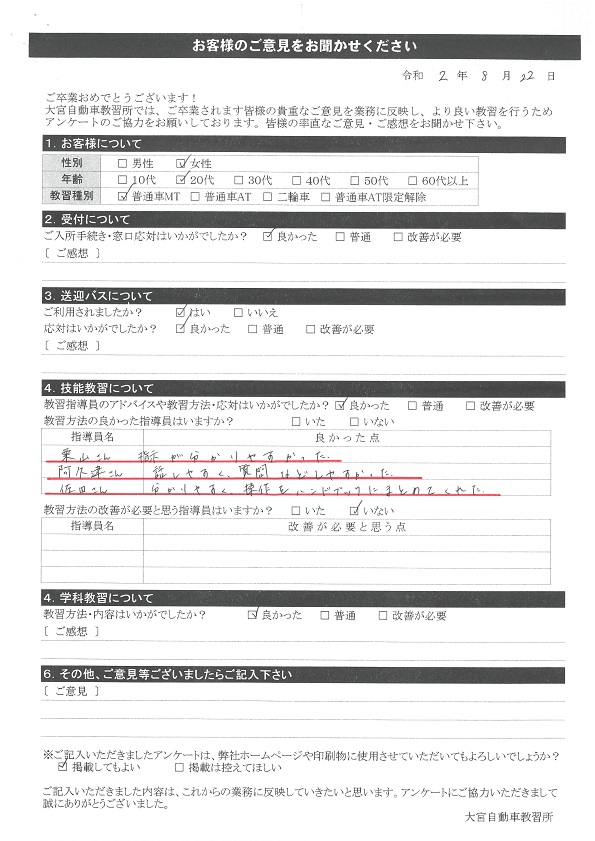 お客様のご意見をお聞かせください
令和 2 年 8 月 22 日
ご卒業おめでとうございます！
大宮自動車教習所では、ご卒業されます皆様の貴重なご意見を業務に反映し、より良い教習を行うため
アンケートのご協力をお願いしております。皆様の率直なご意見・ご感想をお聞かせ下さい。
1. お客様について
性別 □ 男性 ☑ 女性
年齢 □ 10代 ☑ 20代 □ 30代 □ 40代 □ 50代 □ 60代以上
教習種別 ☑ 普通車MT □ 普通車AT □ 二輪車 □ 普通車AT限定解除
2. 受付について
ご入所手続き・窓口応対はいかがでしたか？ ☑ 良かった □ 普通 □ 改善が必要
[ ご感想 ]
3. 送迎バスについて
ご利用されましたか？ ☑ はい □ いいえ
応対はいかがでしたか？ ☑ 良かった □ 普通 □ 改善が必要
[ ご感想 ]
4. 技能教習について
教習指導員のアドバイスや教習方法・応対はいかがでしたか？ ☑ 良かった □ 普通 □ 改善が必要
教習方法の良かった指導員はいますか？ □ いた □ いない
指導員名 良かった点
栗山さん 指示が分かりやすかった.
阿久津さん 話しやすく、質問などしやすかった.
佐田さん 分かりやすく、操作をハンドブックにまとめてくれた.
教習方法の改善が必要と思う指導員はいますか？ □ いた ☑ いない
指導員名 改善が必要と思う点
4. 学科教習について
教習方法・内容はいかがでしたか？ ☑ 良かった □ 普通 □ 改善が必要
[ ご感想 ]
6. その他、ご意見等ございましたらご記入下さい
[ ご意見 ]
※ご記入いただきましたアンケートは、弊社ホームページや印刷物に使用させていただいてもよろしいでしょうか？
☑ 掲載してもよい □ 掲載は控えてほしい
ご記入いただきました内容は、これからの業務に反映していきたいと思います。アンケートにご協力いただきまして
誠にありがとうございました。
大宮自動車教習所